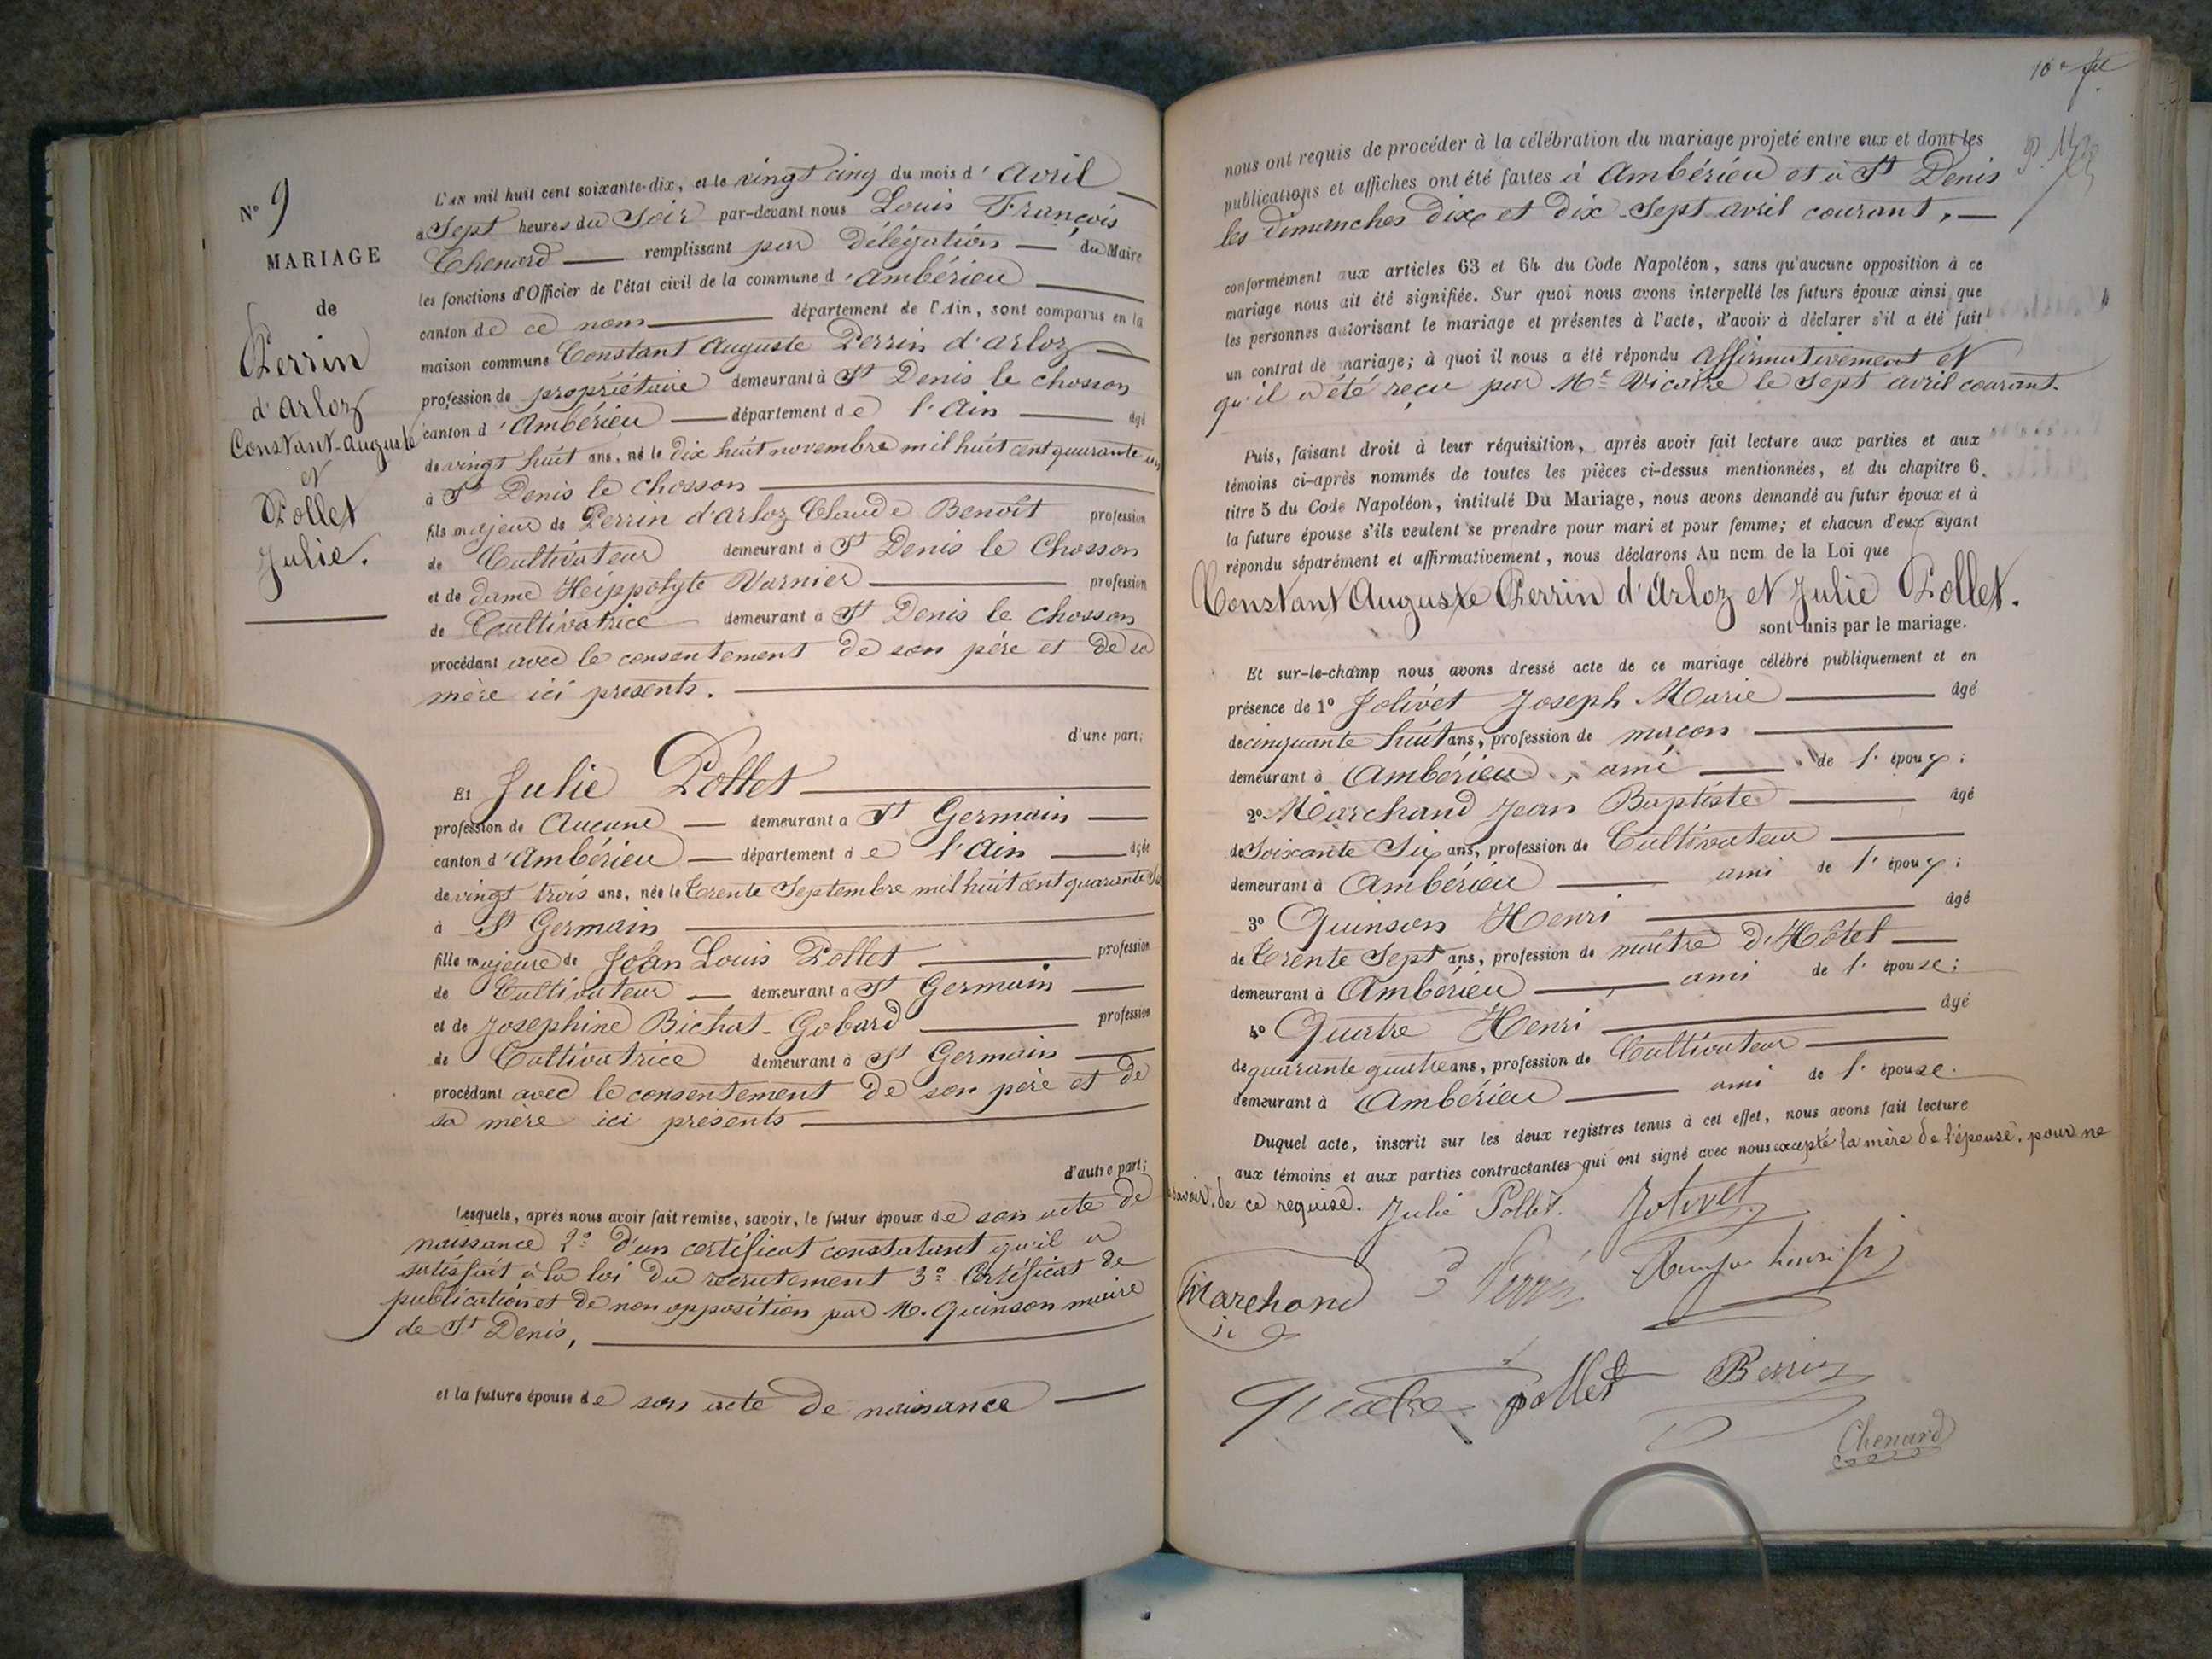 N° 9
MARIAGE
de
Perrin
d'Arloz
Constant-Auguste
et
Pollet
Julie.
L'AN mil huit cent soixante-dix, et le vingt cinq du mois d'Avril
a Sept heures du Soir par-devant nous Louis François
Chenard remplissant par délégation du Maire
les fonctions d'Officier de l'état civil de la commune d'Ambérieu
canton de ce nom département de l'Ain, sont comparus en la
maison commune Constant Auguste Perrin d'arloz
profession de propriétaire demeurant à St Denis le chosson
canton d'Ambérieu département de l'Ain âgé
de vingt huit ans, né le dix huit novembre mil huit cent quarante un
à St Denis le chosson
fils majeur de Perrin d'arloz Claude Benoît profession
de Cultivateur demeurant à St Denis le Chosson
et de dame Heippolyte Varnier profession
de Cultivatrice demeurant a St Denis le chosson
procédant avec le consentement de son père et de sa
mère ici présents.
d'une part;
Et Julie Pollet
profession de Aucune demeurant a St Germain
canton d'Ambérieu département de l'Ain âgée
de vingt trois ans, née le Trente Septembre mil huit cent quarante Six
à St Germain
fille majeure de Jean Louis Pollet profession
de Cultivateur demeurant a St Germain
et de Josephine Bichat-Gobard profession
de Cultivatrice demeurant à St Germain
procédant avec le consentement de son père et de
sa mère ici présents
d'autre part;
Lesquels, après nous avoir fait remise, savoir, le futur époux de son acte de
naissance 2° d'un certificat constatant qu'il a
satisfait à la loi du recrutement 3° Certificat de
publication et de non opposition par M. Quinson maire
de St Denis,
et la future épouse de son acte de naissance
10e
nous ont requis de procéder à la célébration du mariage projeté entre eux et dont les
publications et affiches ont été faites à Ambérieu et à St Denis
les dimanches dix et dix-sept avril courant,
conformément aux articles 63 et 64 du Code Napoléon, sans qu'aucune opposition à ce
mariage nous ait été signifiée. Sur quoi nous avons interpellé les futurs époux ainsi que
les personnes autorisant le mariage et présentes à l'acte, d'avoir à déclarer s'il a été fait
un contrat de mariage; à quoi il nous a été répondu Affirmativement et
qu'il a été reçu par Me Vicaire le Sept avril courant.
Puis, faisant droit à leur réquisition, après avoir fait lecture aux parties et aux
témoins ci-après nommés de toutes les pièces ci-dessus mentionnées, et du chapitre 6.
titre 5 du Code Napoléon, intitulé Du Mariage, nous avons demandé au futur époux et à
la future épouse s'ils veulent se prendre pour mari et pour femme; et chacun d'eux ayant
répondu séparément et affirmativement, nous déclarons Au nom de la Loi que
Constant Auguste Perrin d'Arloz et Julie Pollet.
sont unis par le mariage.
Et sur-le-champ nous avons dressé acte de ce mariage célébré publiquement et en
présence de 1° Jolivet Joseph Marie âgé
de cinquante huit ans, profession de maçon
demeurant à Ambérieu, ami de l'époux;
2° Marchand Jean Baptiste âgé
de Soixante Six ans, profession de Cultivateur
demeurant à Ambérieu ami de l'époux;
3° Quinson Henri âgé
de Trente Sept ans, profession de maître d'Hôtel
demeurant à Ambérieu ami de l'épouse;
4° Quatre Henri âgé
de quarante quatre ans, profession de Cultivateur
demeurant à Ambérieu ami de l'épouse.
Duquel acte, inscrit sur les deux registres tenus à cet effet, nous avons fait lecture
aux témoins et aux parties contractantes qui ont signé avec nous excepté la mère de l'épouse, pour ne
savoir, de ce requise. Julie Pollet. Jolivet
Marchand Perrin
Quatre pollet Perrin
Chenard